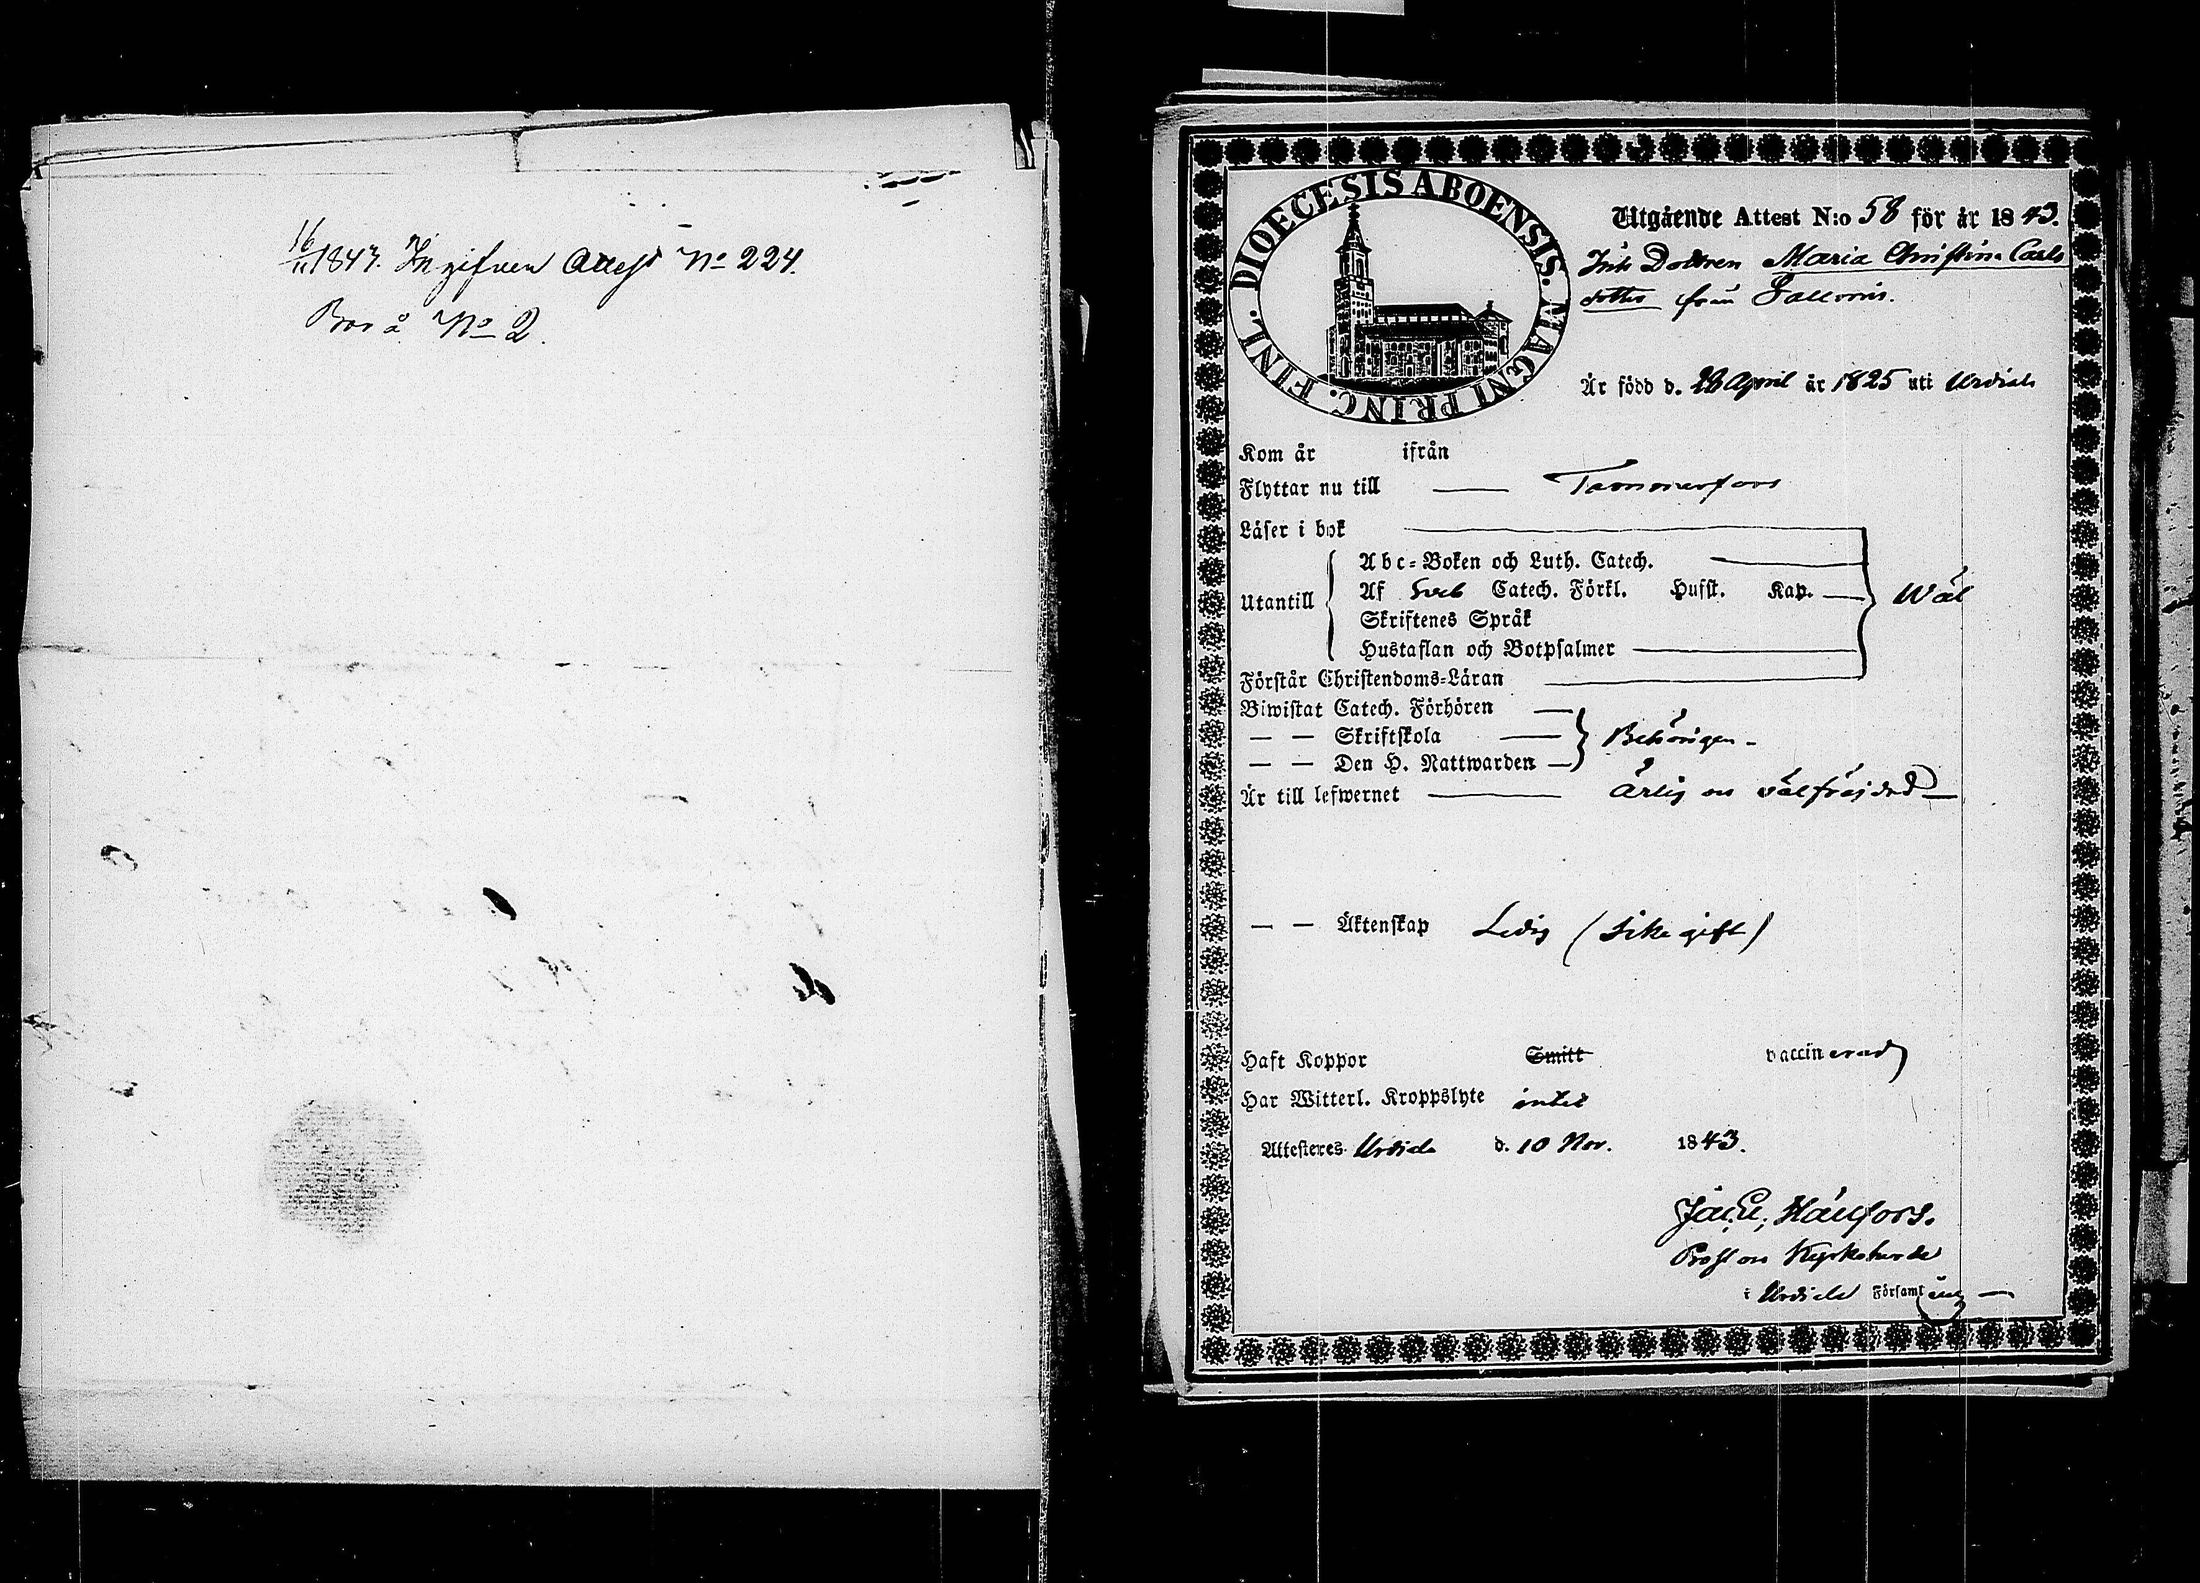 16/11 1847. Ingifven Attest No 224.
Bor å No 2.
DIOECESIS ABOENSIS. MAGNI PRINC. FINL.
Utgående Attest N:o 58 för år 1843.
Inh Dottren Maria Christina Carls
dotter från
Är född d. 28 April år 1825 uti Urdiala
Kom år ifrån
Flyttar nu till — Tammerfors
Läser i bok
Utantill
Abc-Boken och Luth. Catech.
Af Sveb Catech. Förkl. Husst. Kap. — Wäl
Skriftenes Språk
Hustaflan och Botpsalmer
Förstår Christendoms-Läran
Biwistat Catech. Förhören —
— — Skriftskola — Behörigen -
— — Den H. Nattwarden —
Är till lefwernet — Ärlig och välfräjdad —
— — Äktenskap Ledig (icke gift)
Haft Koppor Smitt vaccinerad
Har Witterl. Kroppslyte intet
Attesteres Urdiala d. 10 Nov. 1843.
Hällfors.
Prost och Kyrkoherde
i Urdiala Församling —